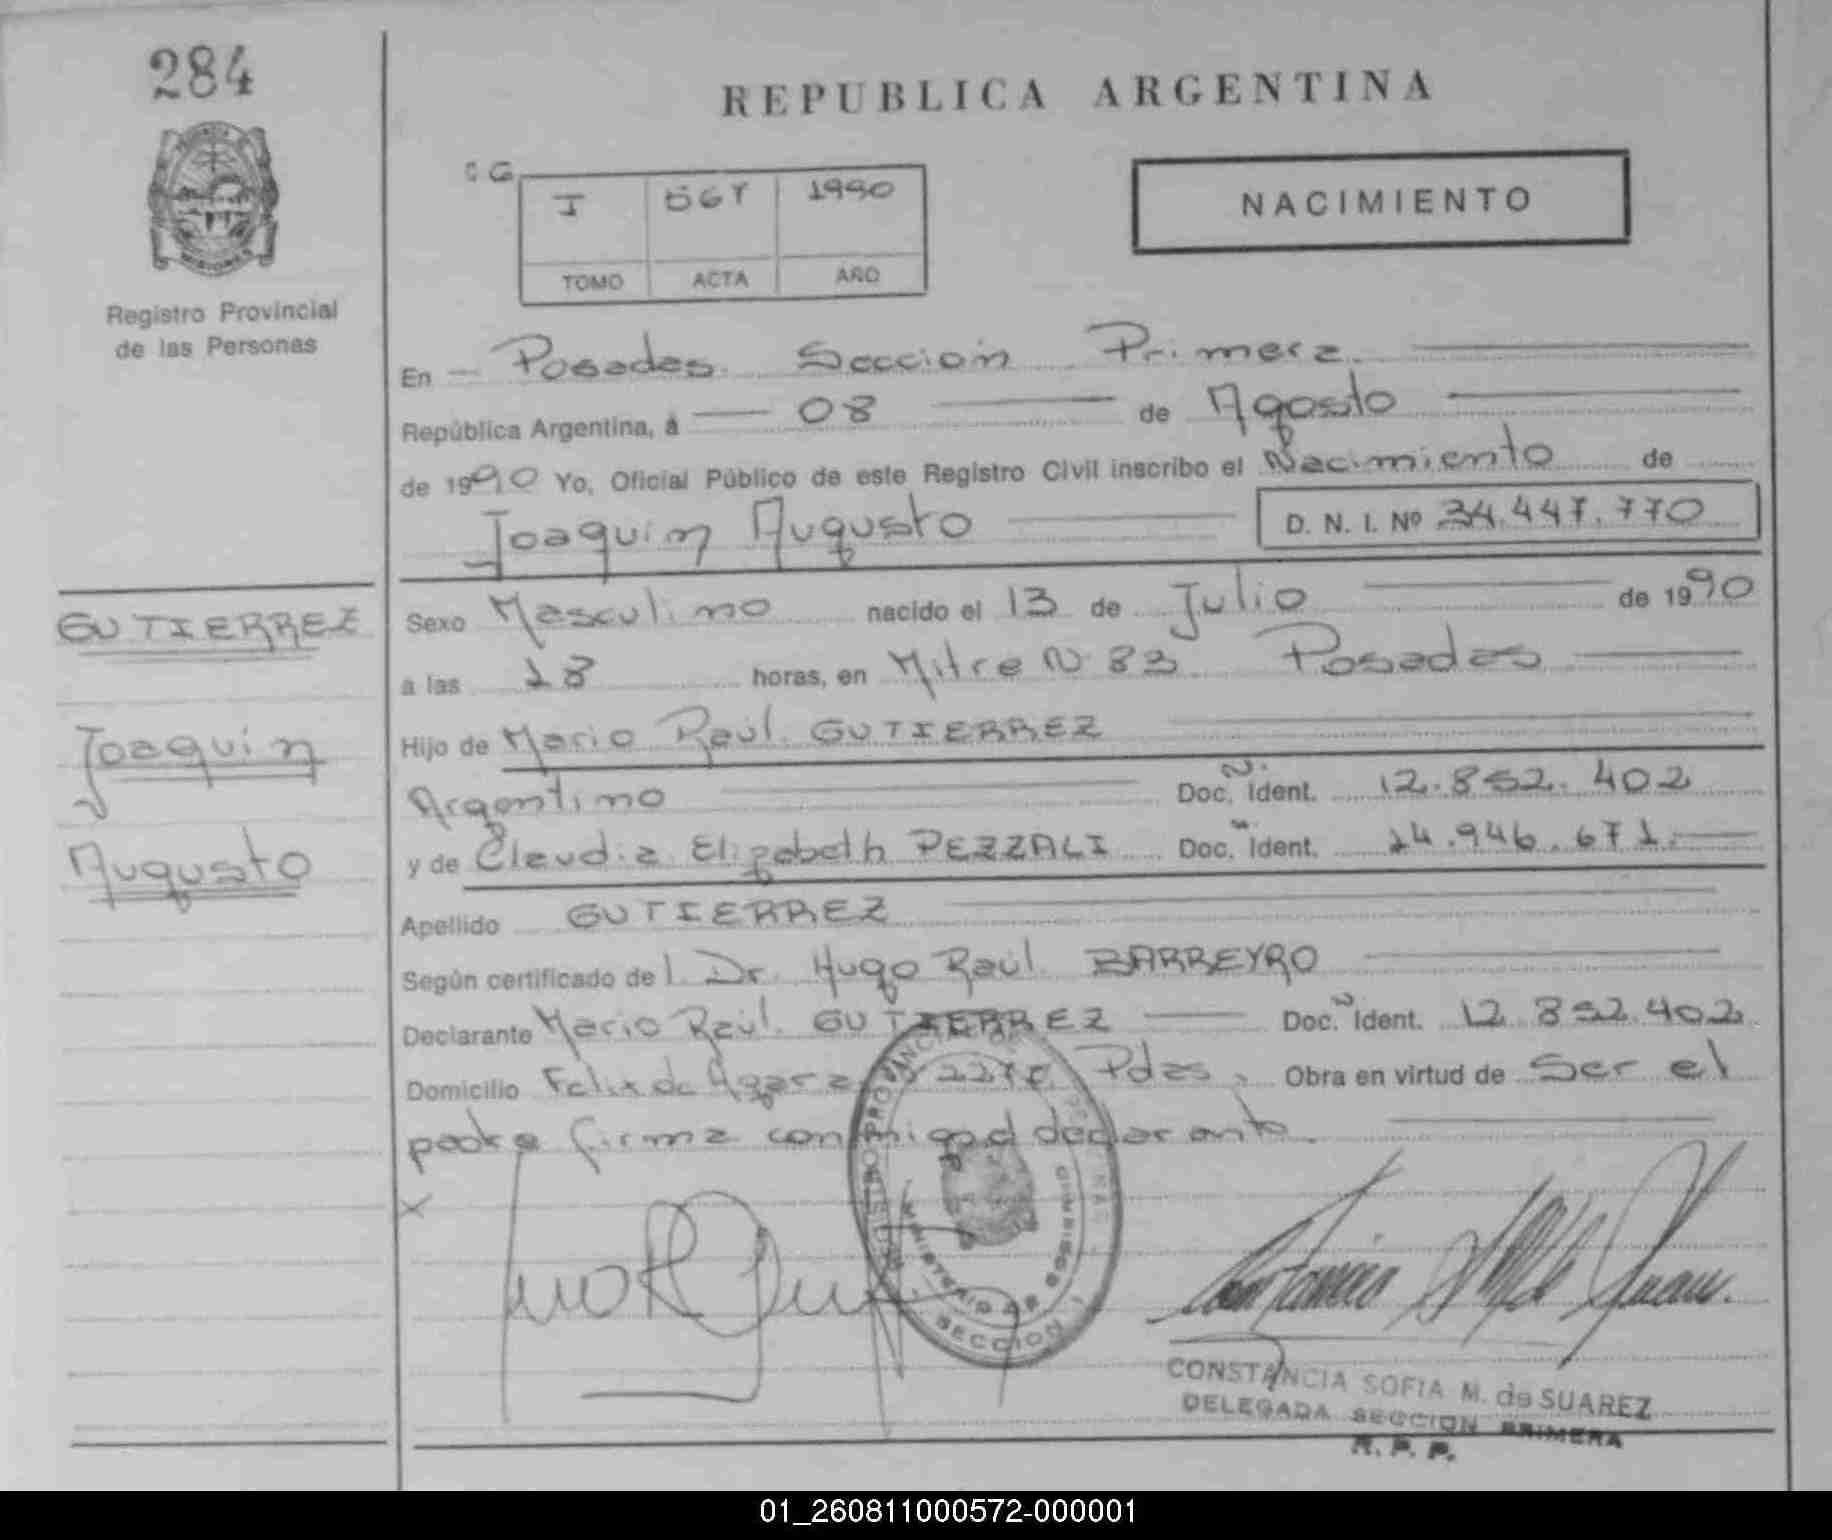 284
REPUBLICA ARGENTINA
I 567 1990
TOMO ACTA AÑO
NACIMIENTO
MISIONES
Registro Provincial
de las Personas
En Posadas Sección Primera
República Argentina, á 08 de Agosto
de 1990 Yo, Oficial Público de este Registro Civil inscribo el Nacimiento de
Joaquin Augusto D. N. I. Nº 34.447.770
GUTIERREZ
Joaquin
Augusto
Sexo Masculino nacido el 13 de Julio de 1990
a las 18 horas, en Mitre N 83 Posadas
Hijo de Mario Raúl GUTIERREZ
Argentino Doc. Ident. 12.852.402
y de Claudia Elizabeth PEZZALI Doc. Ident. 14.946.671
Apellido GUTIERREZ
Según certificado del Dr. Hugo Raúl BARREYRO
Declarante Mario Raúl GUTIERREZ Doc. Ident. 12 852.402
Domicilio Felix de Azara Pdas, Obra en virtud de Ser el
padre firma conmigo el declarante.
X
REGISTRO PROVINCIAL DE
MINISTERIO DE GOBIERNO
SECCION
CONSTANCIA SOFIA M. de SUAREZ
DELEGADA SECCION PRIMERA
R. P. P.
01_260811000572-000001